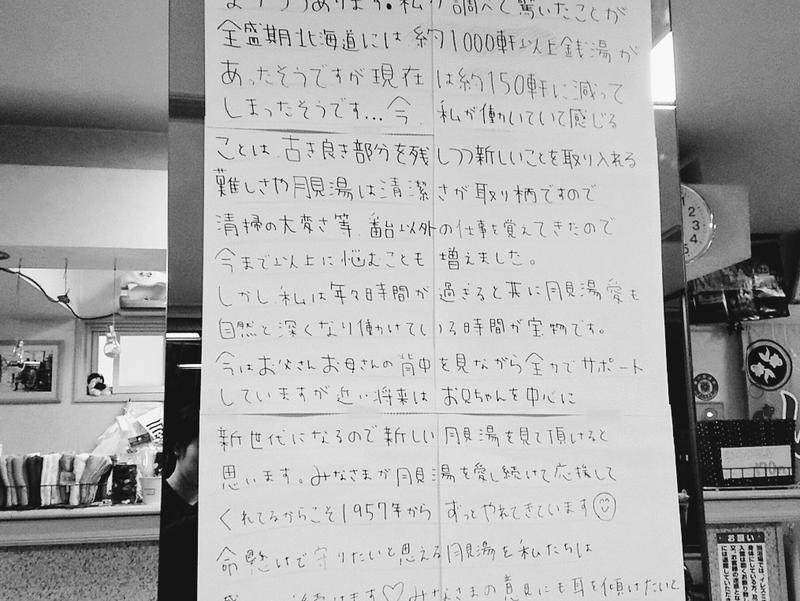 私が調べて驚いたことが
全盛期北海道には約1000軒以上銭湯が
あったそうですが現在は約150軒に減って
しまったそうです...今、私が働いていて感じる
ことは、古き良き部分を残しつつ新しいことを取り入れる
難しさや月見湯は清潔さが取り柄ですので
清掃の大変さ等、番台以外の仕事を覚えてきたので
今まで以上に悩むことも増えました。
しかし私は年々時間が過ぎると共に月見湯愛も
自然と深くなり働けている時間が宝物です。
今はお父さんお母さんの背中を見ながら全力でサポート
していますが近い将来はお兄ちゃんを中心に
新世代になるので新しい月見湯を見て頂けると
思います。みなさまが月見湯を愛し続けて応援して
くれてるからこそ1957年からずっとやれてきています☺
命懸けで守りたいと思える月見湯を私たちは
続けます♡みなさまの意見にも耳を傾けたいと
2
3
4
5
お願い